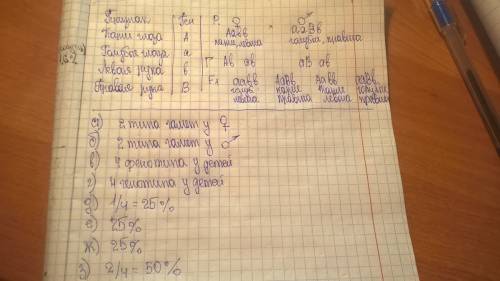 Признак Ген Р: ♀ × ♂
Карие глаза А Аавв ааВв
карие, левша голубые, правша
Голубые глаза а
Левая рука в Г Ав ав аВ ав
Правая рука В F1 аавв АаВв Аавв ааВв
голуб. карие карие голубые
левша правша левша правша
а) 2 типа гамет у ♀
б) 2 типа гамет у ♂
в) 4 фенотипа у детей
г) 4 генотипа у детей
д) 1/4 = 25%
е) 25%
ж) 25%
з) 2/4 = 50%